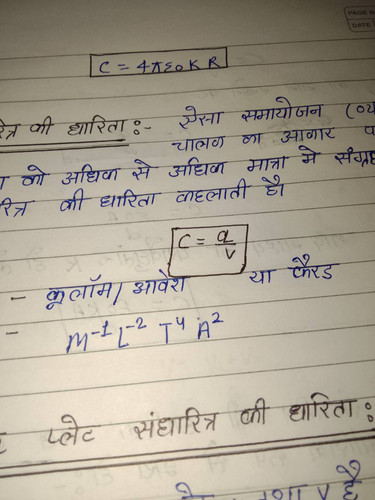 PAGE
DATE
C = 4πε₀ K R
की धारिता :- ऐसा समायोजन
चालक का आकार
को अधिक से अधिक मात्रा मे
की धारिता कहलाती है।
C = q/v
- कूलॉम/ आवेश या फैरड
- M⁻¹ L⁻² T⁴ A²
प्लेट संधारित्र की धारिता :
v है